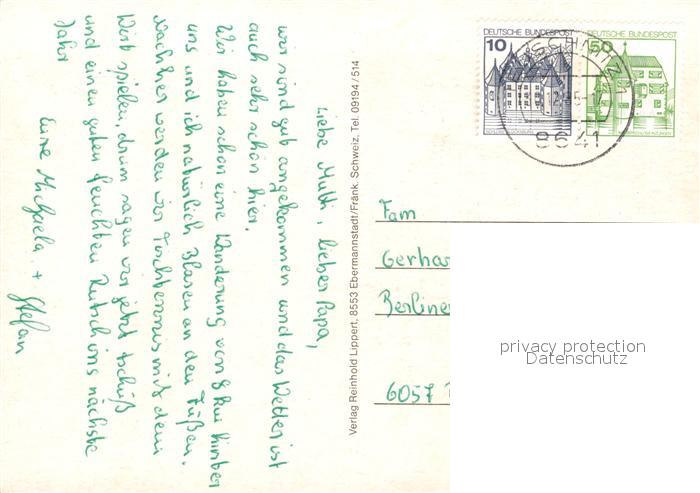 Liebe Mutti, lieber Papa,
wir sind gut angekommen und das Wetter ist
auch sehr schön hier.
Wir haben schon eine Wanderung von 8 km hinter
uns und ich natürlich Blasen an den Füßen.
Nachher werden wir Tischtennis mit dem
Wirt spielen, drum sagen wir jetzt tschüß
und einen guten feuchten Rutsch ins nächste
Jahr
Eure Michaela + Stefan
Verlag Reinhold Lippert, 8553 Ebermannstadt/Fränk. Schweiz, Tel. 09194/514
DEUTSCHE BUNDESPOST
10
DEUTSCHE BUNDESPOST
50
8641
Fam
Gerhar
Berliner
6057
privacy protection
Datenschutz